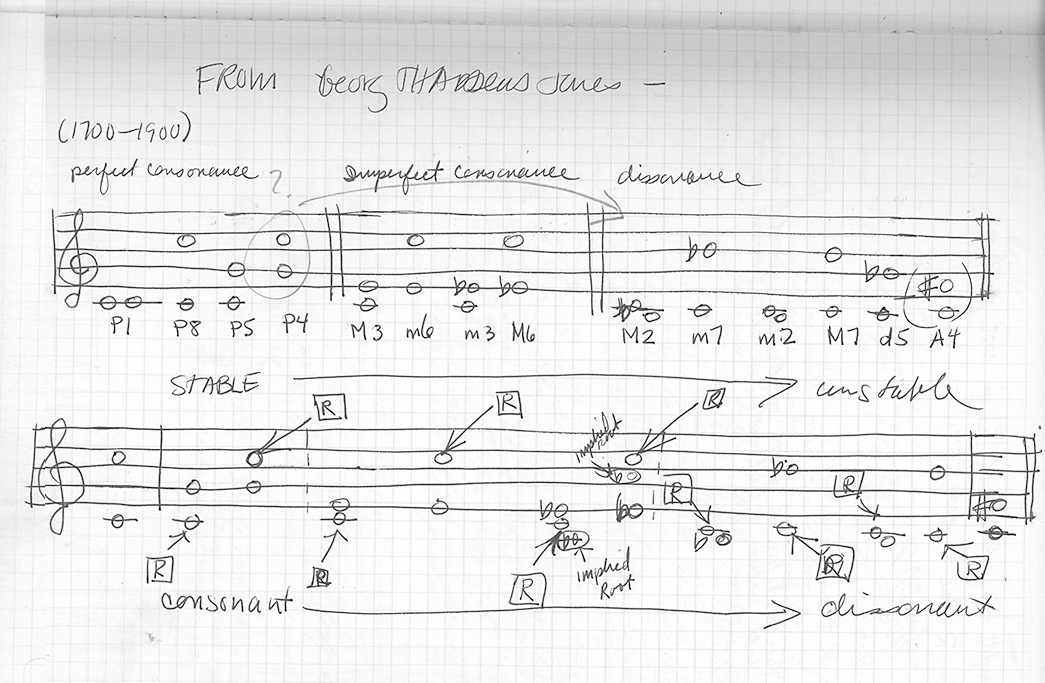 FROM Georg THADDEUS Jones —
(1700-1900)
perfect consonance ? Imperfect consonance dissonance
P1 P8 P5 P4 M3 m6 m3 M6 M2 m7 m2 M7 d5 A4
STABLE unstable
R R R
implied Root
R R
R R R R R
implied Root
consonant dissonant